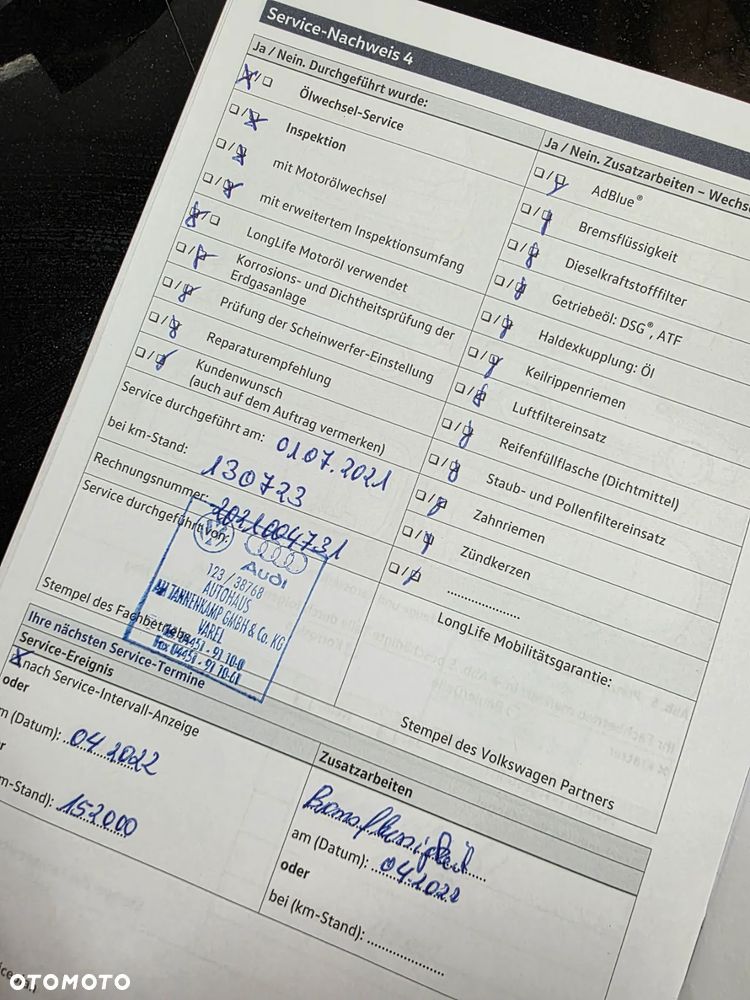 Service-Nachweis 4
Ja / Nein. Durchgeführt wurde:
Ölwechsel-Service
Inspektion
mit Motorölwechsel
mit erweitertem Inspektionsumfang
LongLife Motoröl verwendet
Korrosions- und Dichtheitsprüfung der
Erdgasanlage
Prüfung der Scheinwerfer-Einstellung
Reparaturempfehlung
Kundenwunsch
(auch auf dem Auftrag vermerken)
Ja / Nein. Zusatzarbeiten – Wechse
AdBlue®
Bremsflüssigkeit
Dieselkraftstofffilter
Getriebeöl: DSG®, ATF
Haldexkupplung: Öl
Keilrippenriemen
Luftfiltereinsatz
Reifenfüllflasche (Dichtmittel)
Staub- und Pollenfiltereinsatz
Zahnriemen
Zündkerzen
Service durchgeführt am: 01.07.2021
bei km-Stand: 130723
Rechnungsnummer: 2021004731
Service durchgeführt von:
Audi
123 / 38768
AUTOHAUS
TANNENKAMP GMBH & Co. KG
VAREL
Tel. 04451 - 91 70-0
Fax 04451 - 91 70-61
Stempel des Fachbetriebs
LongLife Mobilitätsgarantie:
Stempel des Volkswagen Partners
Ihre nächsten Service-Termine
Service-Ereignis
nach Service-Intervall-Anzeige
oder
m (Datum): 04.2022
m-Stand): 152000
Zusatzarbeiten
Bremsflüssigkeit
am (Datum): 04.2022
oder
bei (km-Stand):
OTOMOTO